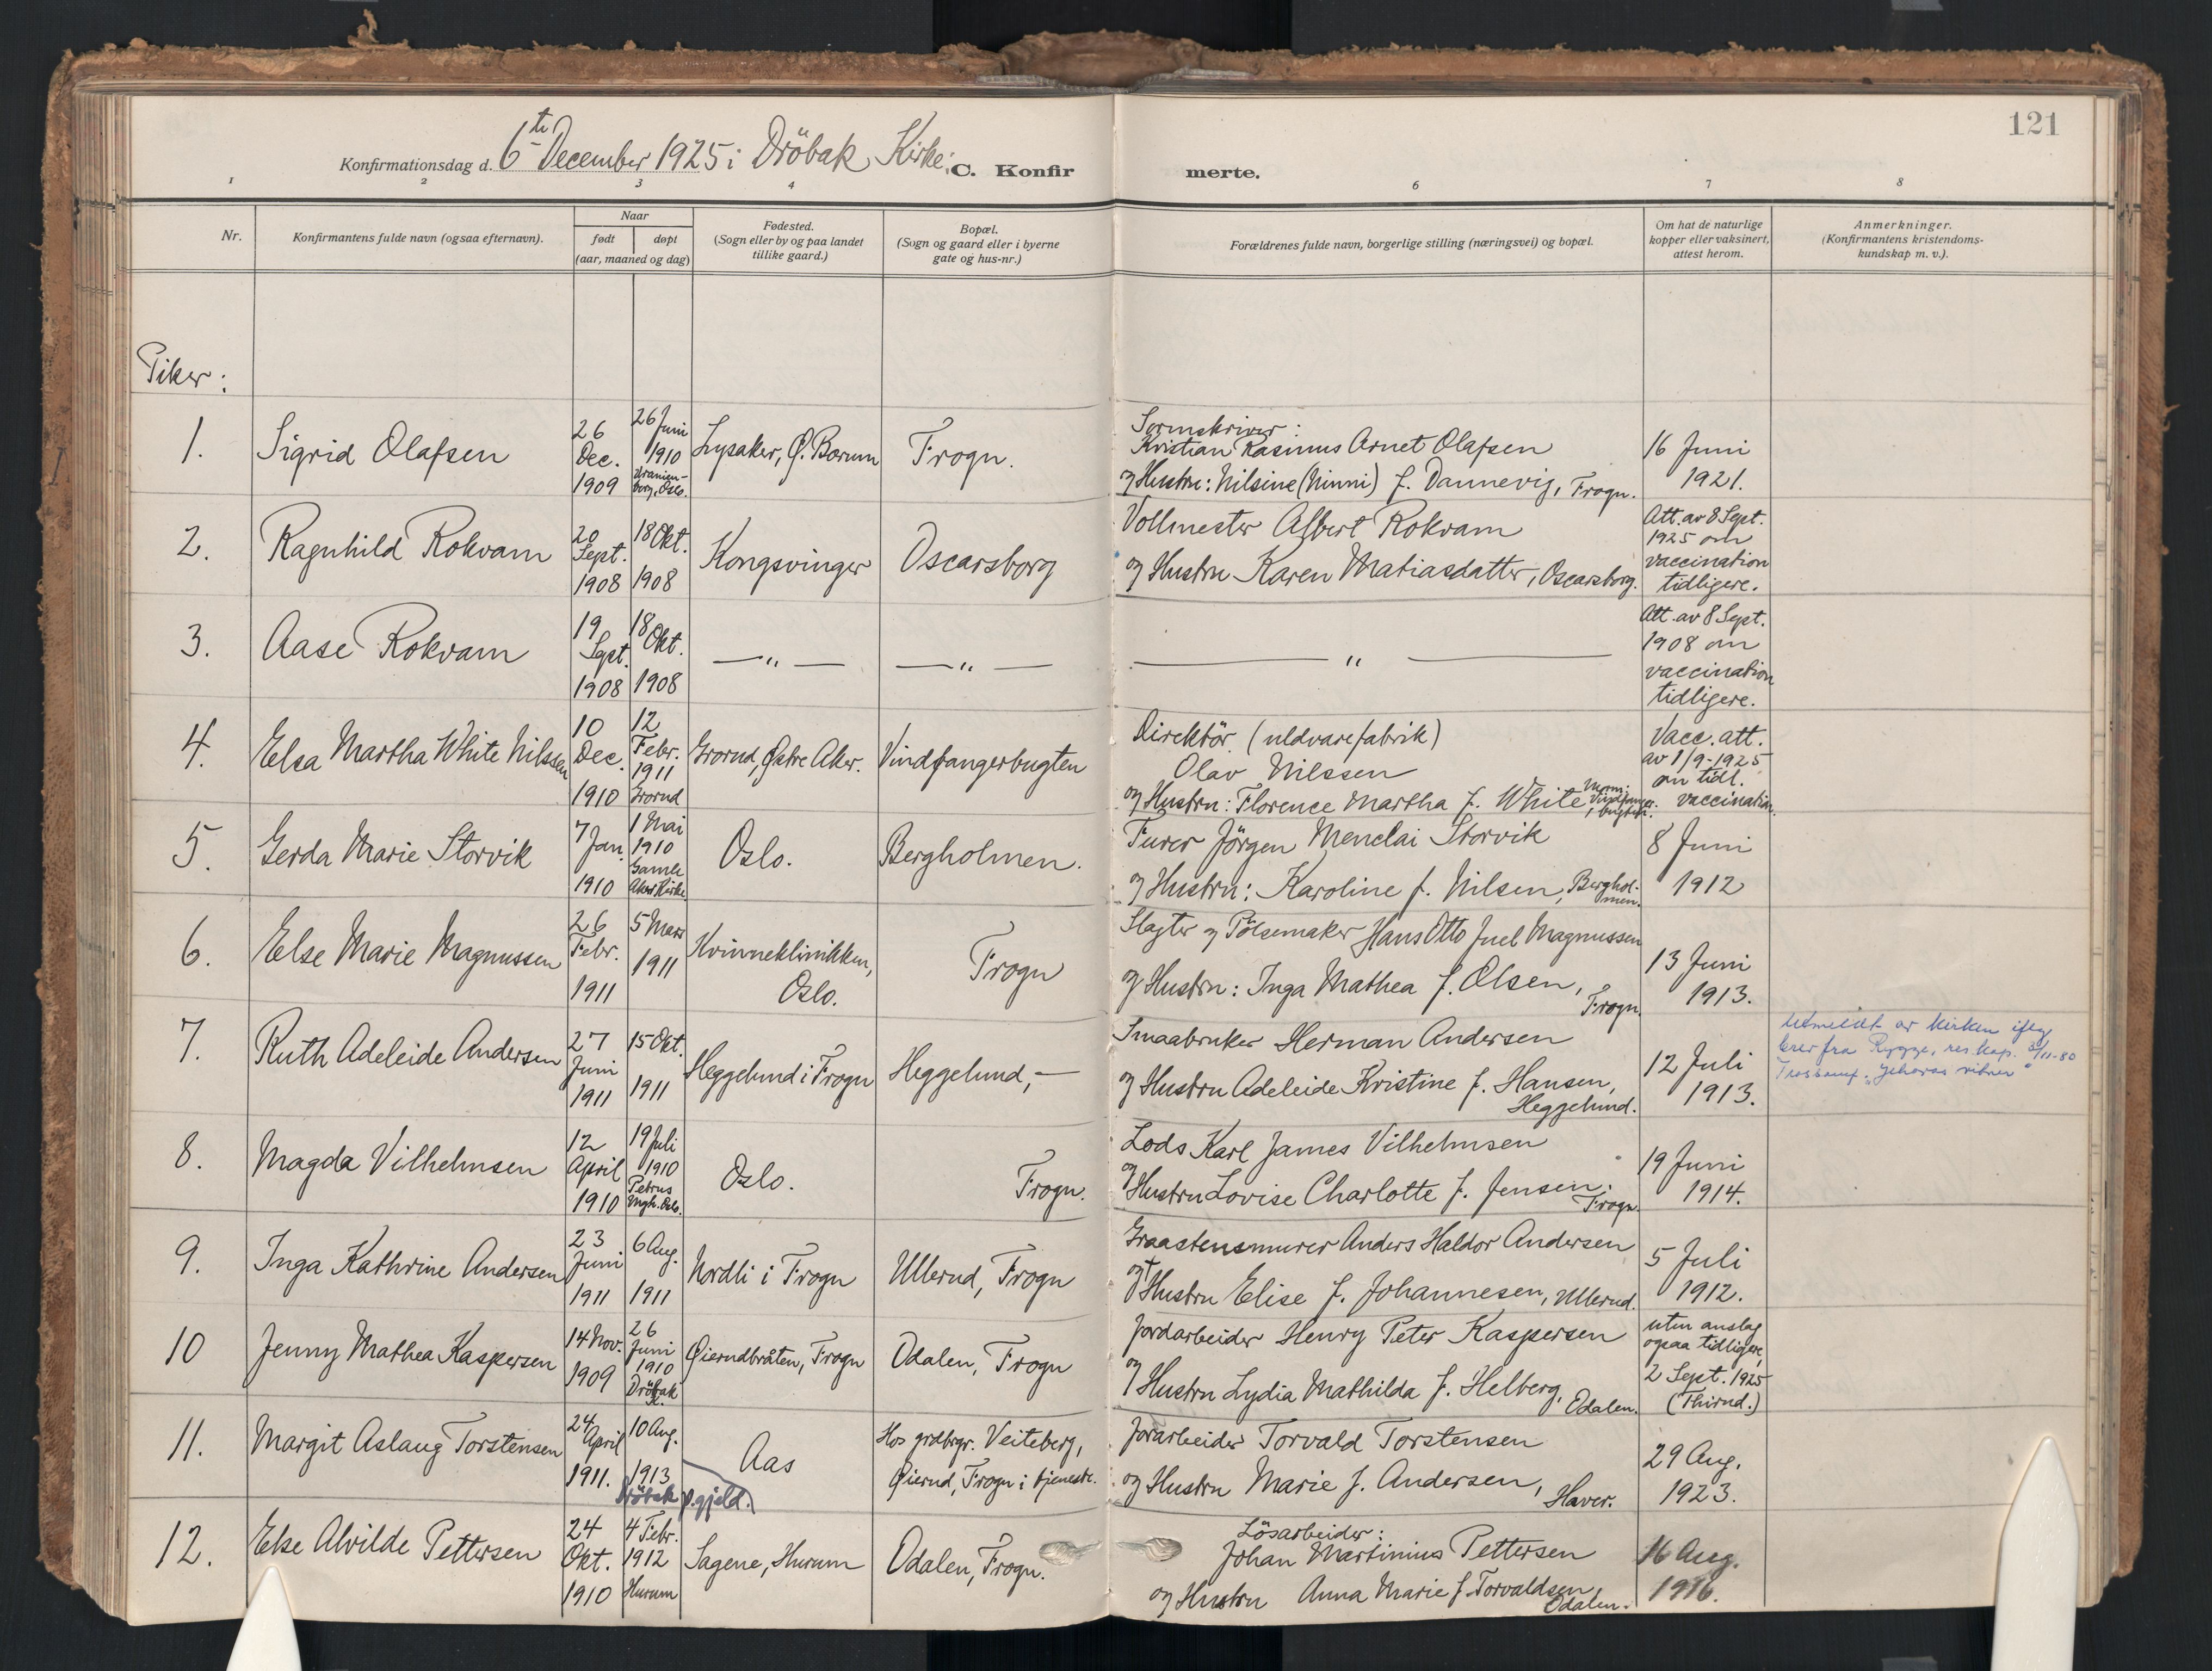 121
Konfirmationsdag d. 6te December 1925 i Dröbak Kirke. C. Konfir merte.
1 2 3 4 6 7 8
Nr.
Konfirmantens fulde navn (ogsaa efternavn).
Naar
født døpt
(aar, maaned og dag)
Fødested.
(Sogn eller by og paa landet
tillike gaard.)
Bopæl.
(Sogn og gaard eller i byerne
gate og hus-nr.)
Forældrenes fulde navn, borgerlige stilling (næringsvei) og bopæl.
Om hat de naturlige
kopper eller vaksinert,
attest herom.
Anmerkninger.
(Konfirmantens kristendoms-
kundskap m. v.).
Piker:
1.
Sigrid Olafsen
26
Dec.
1909
26 Juni
1910
Uranien-
borg, Oslo.
Lysaker, Ø. Bærum
Frogn.
Sorenskriver:
Kristian Rasmus Arnet Olafsen
og Hustru: Nilsine (Ninni) f. Dannevig, Frogn.
16 Juni
1921.
2.
Ragnhild Rokvam
20
Sept.
1908
18 Okt.
1908
Kongsvinger
Oscarsborg
Vollmester Albert Rokvam
og Hustru Karen Matiasdatter, Oscarsborg.
Att. av 8 Sept.
1925 om
vaccination
tidligere.
3.
Aase Rokvam
19
Sept.
1908
18
Okt.
1908
— " —
— " —
— " —
Att. av 8 Sept.
1908 om
vaccination
tidligere.
4.
Elsa Martha White Nilssen
10
Dec.
1910
12
Febr.
1911
Grorud
Grorud, Østre Aker.
Vindfangerbugten
Direktör (uldvarefabrik)
Olav Nilssen
og Hustru: Florence Martha f. White
Vindfanger-
bugten.
Vacc. att.
av 1/9-1925
om tidl.
vaccination.
5.
Gerda Marie Storvik
7
Jan.
1910
1 Mai
1910
Gamle
Aker Kirke
Oslo.
Bergholmen.
Furer Jörgen Menelai Storvik
og Hustru: Karoline f. Nilsen, Berghol-
men.
8 Juni
1912
6.
Else Marie Magnussen
26
Febr.
1911
5 Mars
1911
Kvinneklinikken,
Oslo.
Frogn
Slagter og Pölsemaker Hans Otto Juel Magnussen
og Hustru: Inga Mathea f. Olsen,
Frogn.
13 Juni
1913.
7.
Ruth Adeleide Andersen
27
Juni
1911
15 Okt.
1911
Heggelund i Frogn
Heggelund, —
Smaabruker Herman Andersen
og Hustru Adeleide Kristine f. Hansen,
Heggelund.
12 Juli
1913.
Utmeldt av kirken iflg
brev fra Rygge, res. kap. 3/11-80
Trossamf. "Jehovas vitner"
8.
Magda Vilhelmsen
12
April
1910
19 Juli
1910
Petrus
Mgh. Oslo.
Oslo.
Frogn.
Lods Karl James Vilhelmsen
og Hustru Lovise Charlotte f. Jensen.
Frogn.
19 Juni
1914.
9.
Inga Kathrine Andersen
23
Juni
1911
6 Aug.
1911
Nordli i Frogn
Ullerud, Frogn
Graastensmurer Anders Haldor Andersen
og † Hustru Elise f. Johannesen, Ullerud.
5 Juli
1912.
10
Jenny Mathea Kaspersen
14 Nov.
1909
26
Juni
1910
Dröbak
K.
Øierudbråten, Frogn
Odalen, Frogn
Jordarbeider Henry Peter Kaspersen
og Hustru Lydia Mathilda f. Helberg,
Odalen.
uten anslag
ogsaa tidligere,
2 Sept. 1925
(Thirud.)
11.
Margit Aslaug Torstensen
24
April
1911.
10 Aug.
1913
Dröbak p.gjeld.
Aas
Hos grdbrgr. Veiteberg,
Øierud, Frogn i tjeneste.
Jorarbeider Torvald Torstensen
og Hustru Marie f. Andersen,
Haver.
29 Aug.
1923.
12.
Else Alvilde Pettersen
24
Okt.
1910
4 Febr.
1912
Hurum
Sagene, Hurum
Odalen, Frogn.
Lösarbeider:
Johan Martinius Pettersen
og Hustru Anna Marie f. Torvaldsen,
Odalen.
16 Aug.
1916.